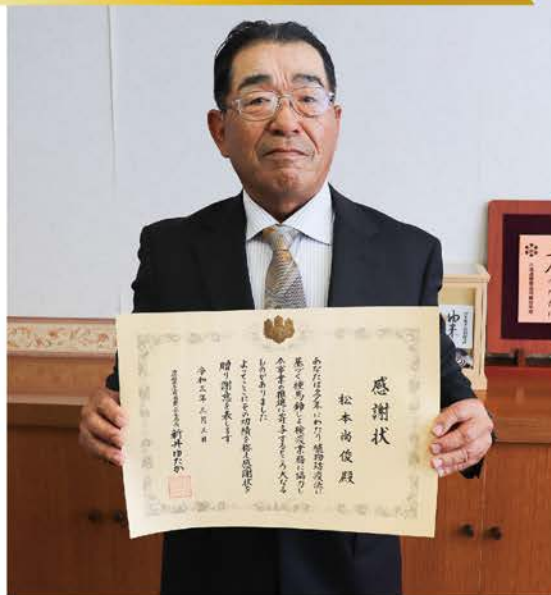 感謝状
松本尚俊殿
あなたは多年にわたり植物防疫法に
基づく種馬鈴しょ検疫業務に協力し
本事業の推進に寄与するところ大なる
ものがありました
よってここにその功績を称え感謝状を
贈り謝意を表します
令和三年 三月三日
新井ゆたか